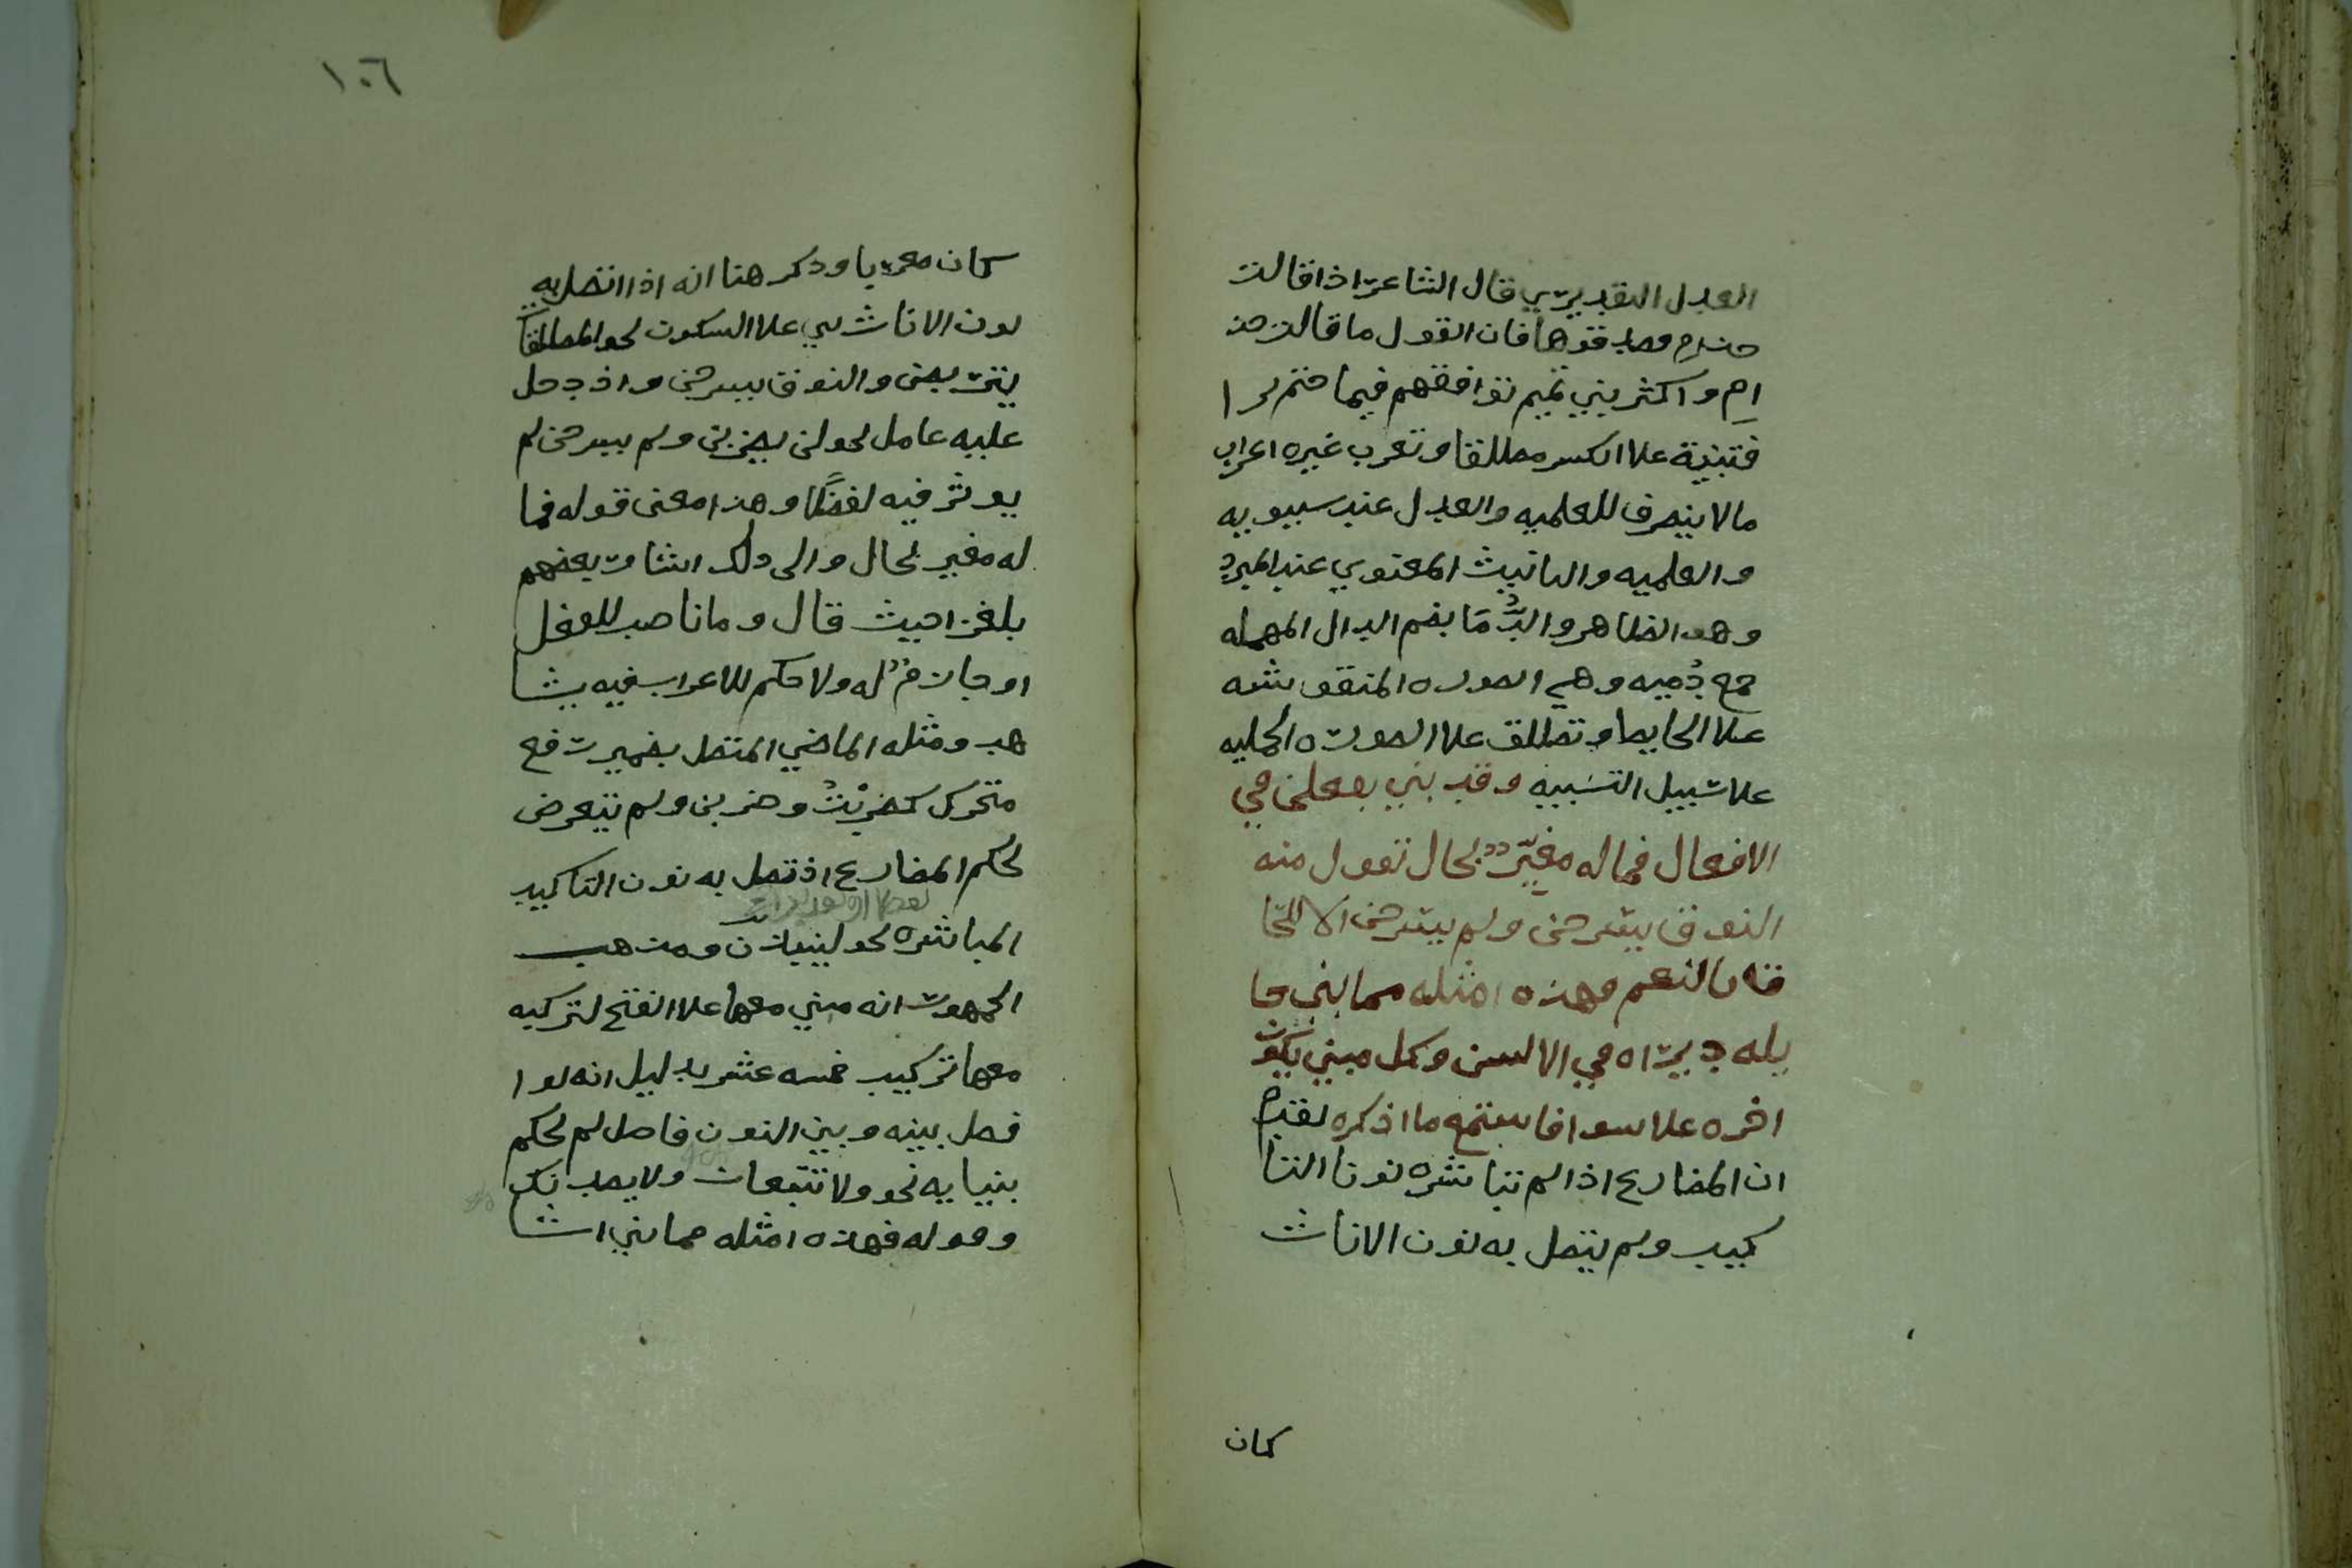 العدل التقديري قال الشاعر اذا قالت
حذام فصدقوها فان القول ما قالت حذ
ام واكثر بني تميم توافقهم فيما ختم برا
فتبنية علا الكسر مطلقا وتعرب غيره اعراب
مالا ينصرف للعلميه والعدل عند سيبويه
والعلميه والتانيث المعنوي عند المبرد
وهو الظاهر والدُّمَا بضم الدال المهمله
جمع دُميه وهي الصوره المنقوشه
علا الحايط وتطلق علا الصورة الجمليه
علا سبيل التشبيه وقد بني يفعلن في
الافعال فماله مغيّر بحال تقول منه
النوق يسرحن ولم يسرحن الا للحا
ق بالنعم فهذه امثله مما بني جا
يله ديراه في الالسن وكل مبني يكون
اخره علا سوا فاستمع ما اذكره تقدم
ان المضارع اذا لم تباشره نونا التا
كيد ولم يتصل به نون الاناث
كان
١٠٦
كان معربا وذكر هنا انه اذا اتصل به
نون الاناث بني علا السكون نحو المطلقا
يتربصن والنوق يسرحن واذ دخل
عليه عامل نحو لن يضربن ولم يسرحن لم
يوثر فيه لفظًا وهذا معنى قوله فما
له مغير بحال والى ذلك اشار بعضهم
بلغزا حيث قال وما ناصب للفعل
او جازمٌ له ولا حكم للاعراب فيه يشا
هد ومثله الماضي المتصل بضمير رفع
متحرك كضربْتُ وضربن ولم يتعرض
لحكم المضارع اذ تصل به نون التاكيد
المباشره نحو لينبذن ومذهب
الجمهور انه مبني معها علا الفتح لتركيبه
معها تركيب خمسه عشر بدليل انه لوا
فصل بينه وبين النون فاصل لم يحكم
ببنايه نحو ولا تتبعان ولا يصدنك
وقوله فهذه امثله مما بني اشا